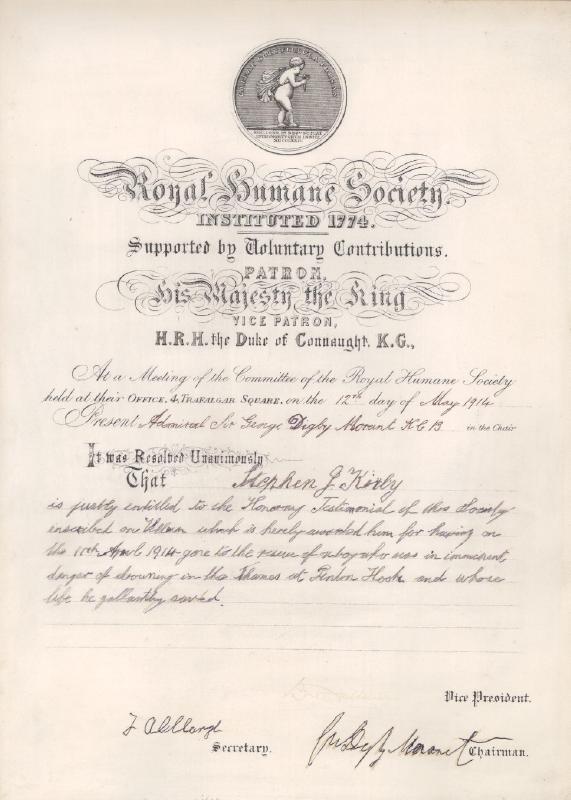 LATEAT SCINTILLVLA FORSAN
Royal Humane Society.
INSTITUTED 1774.
Supported by Voluntary Contributions.
PATRON,
His Majesty the King
VICE PATRON,
H.R.H. the Duke of Connaught, K.G.,
At a Meeting of the Committee of the Royal Humane Society
held at their OFFICE, 4, TRAFALGAR SQUARE, on the 12th day of May 1914
Present Admiral Sir George Digby Morant KCB in the Chair
It was Resolved Unanimously
That Stephen J. Kirby
is justly entitled to the Honorary Testimonial of this Society
inscribed on Vellum which is hereby awarded him for having on
the 11th April 1914 gone to the rescue of a boy who was in imminent
danger of drowning in the Thames at Penton Hook and whose
life he gallantly saved.
Vice President.
Secretary.
Geo Digby Morant Chairman.